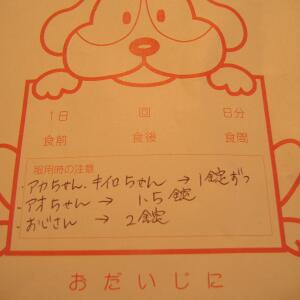 1日 回 日分
食前 食後 食間
服用時の注意
・アカちゃん、キイロちゃん → 1錠ずつ
・アオちゃん → 1.5錠
・おじさん → 2錠
おだいじに